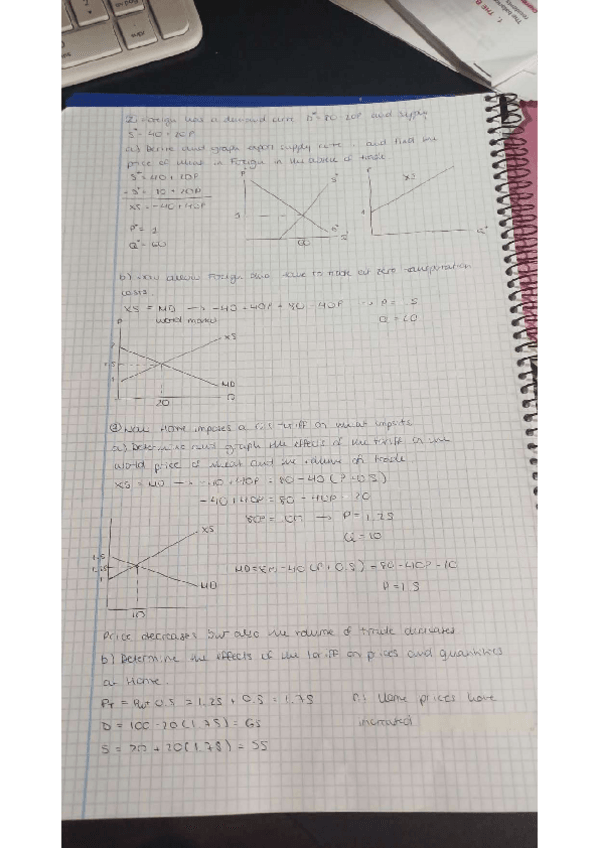 2. Foreign has a demand curve D* = 80 - 20P and supply
S* = 40 + 20P
a) Derive and graph export supply curve and find the
price of wheat in Foreign in the absence of trade
XS = -40 + 40P
P* = 1
Q* = 60
P
S*
D*
1
60
P
XS
1
b) Now allow Foreign and Home to trade at zero transportation
costs.
XS = MD → -40 + 40P = 80 - 40P → P = 1.5
Q = 20
P
world market
XS
2
1.5
1
MD
20
Q
③ Now Home imposes a 0.5 tariff on wheat imports
a) Determine and graph the effects of the tariff on the
world price of wheat and the volume of trade
XS = MD → -40 + 40P = 80 - 40(P + 0.5)
-40 + 40P = 80 - 40P - 20
80P = 100 → P = 1.25
Q = 10
XS
1.5
1.25
1
MD
10
P = 1.5
Price decreases but also the volume of trade decreases
b) Determine the effects of the tariff on prices and quantities
at Home.
PT = Pw + 0.5 = 1.25 + 0.5 = 1.75
Home prices have
D = 100 - 20(1.75) = 65
increased
S = 20 + 20(1.75) = 55